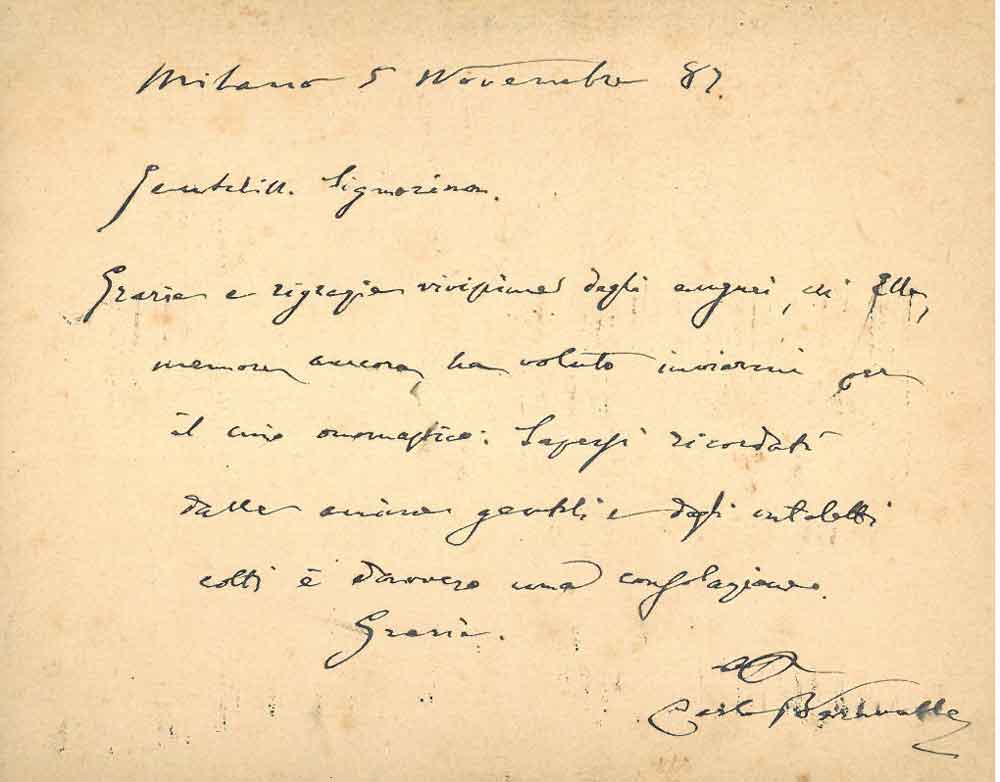 Milano 5 Novembre 87.
Gentiliss. Signorina.
Grazie e rigrazie vivissime degli auguri, ch' Ella,
memore ancora, ha voluto inviarmi per
il mio onomastico. Sapersi ricordati
dalle anime gentili e dagli intelletti
colti è davvero una consolazione.
Grazie.
Carlo